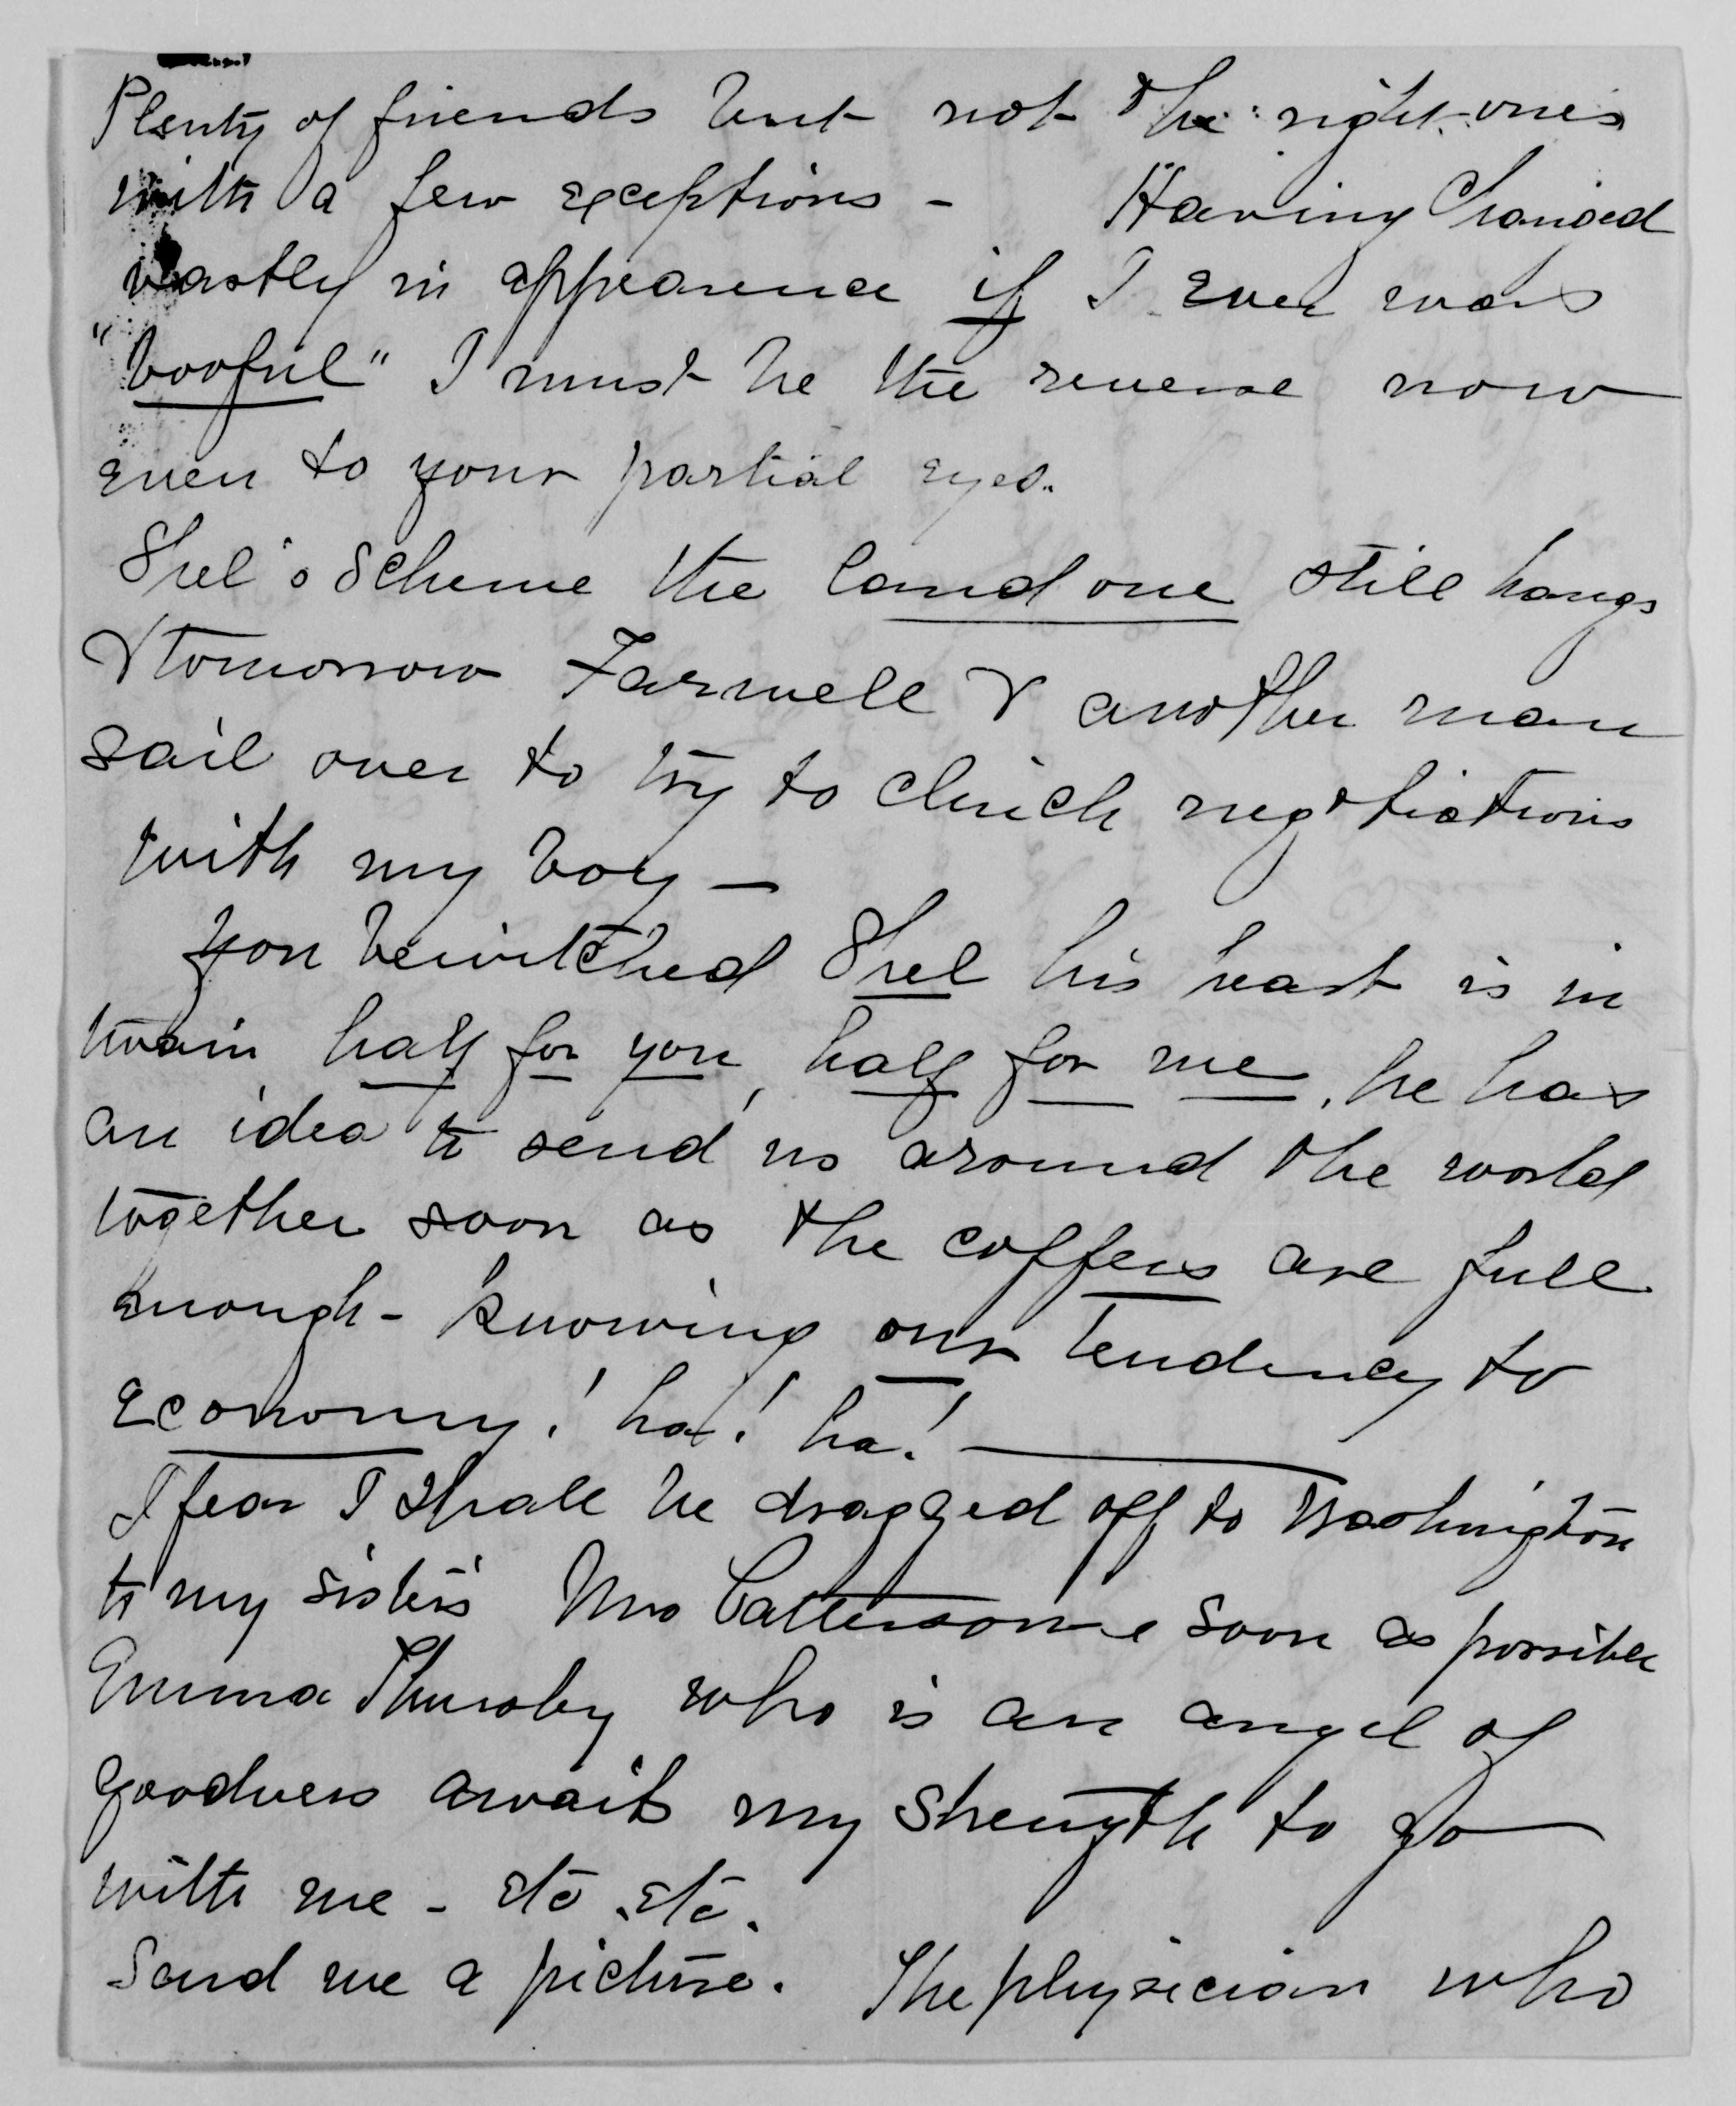 Plenty of friends but not the right ones
with a few exceptions - Having changed
vastly in appearance if I ever was
"boo​ful" I must be the reverse now
even to your partial eyes.
Shel's scheme the land one still hangs
& tomorrow Farwell & another man
sail over to try to clinch negotiations
with my boy -
you bewitched Shel his heart is in
twain, half for you, half for me, he has
an idea to send us around the world
together soon as the coffers are full
enough - knowing our tendency to
economy! ha! ha! -
I fear I shall be dragged off to Washington
to my sister's Mrs soon as possible
Emma Thursby who is an angel of
goodness awaits my strength to go
with me - etc. etc.
Send me a picture. The physician who